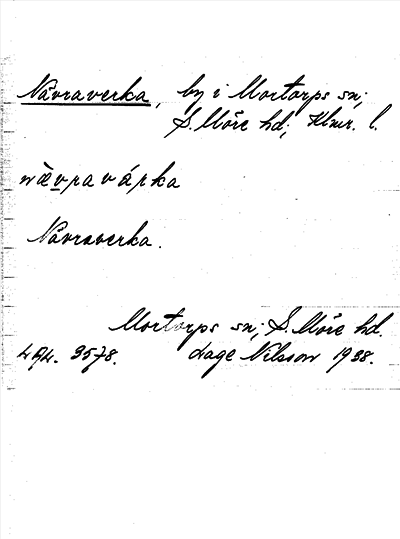 Nåvraverka, by i Mortorps sn;
S. Möre hd; Klmr. l.
nævravárka
Nåvraverka.
Mortorps sn; S. Möre hd.
3578. Lage Nilsson 1938.